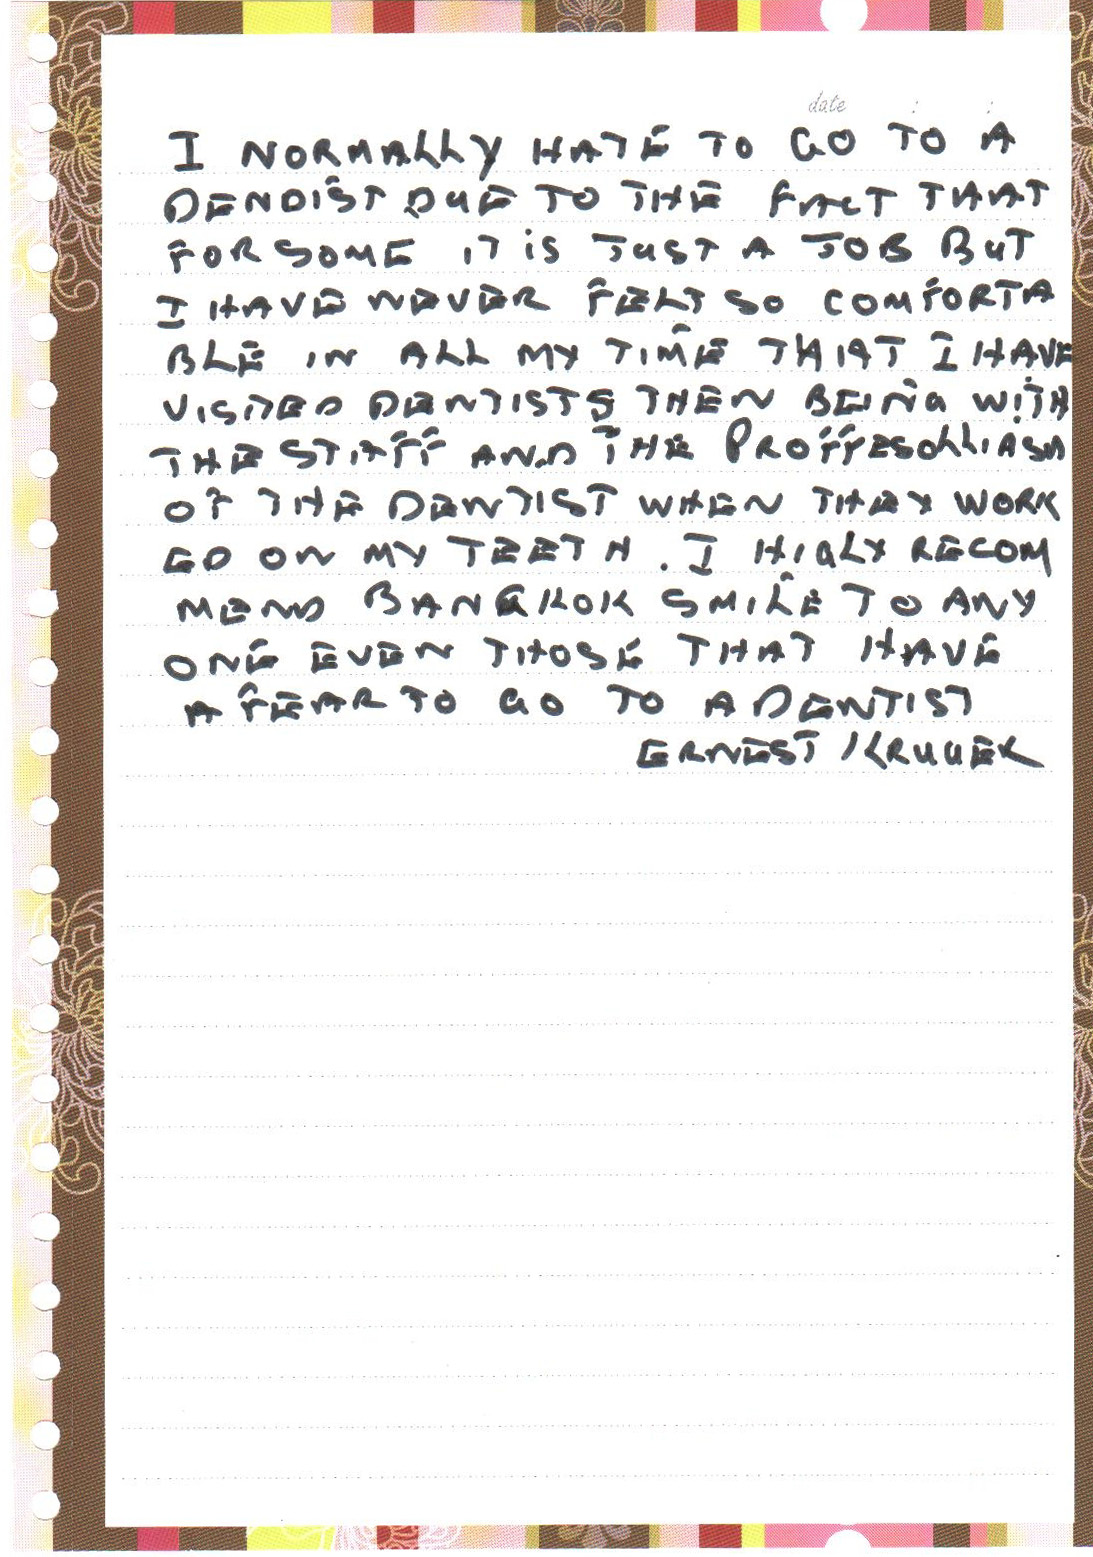 date : :
I NORMALLY HATE TO GO TO A
DENDIST DUE TO THE FACT THAT
FOR SOME IT IS JUST A JOB BUT
I HAVE NEVER FELT SO COMFORTA
BLE IN ALL MY TIME THAT I HAVE
VISITED DENTISTS THEN BEING WITH
THE STAFF AND THE
OF THE DENTIST WHEN THEY WORK
ED ON MY TEETH. I HIGLY RECOM
MEND BANGKOK SMILE TO ANY
ONE EVEN THOSE THAT HAVE
A FEAR TO GO TO A DENTIST
ERNEST KRUGER